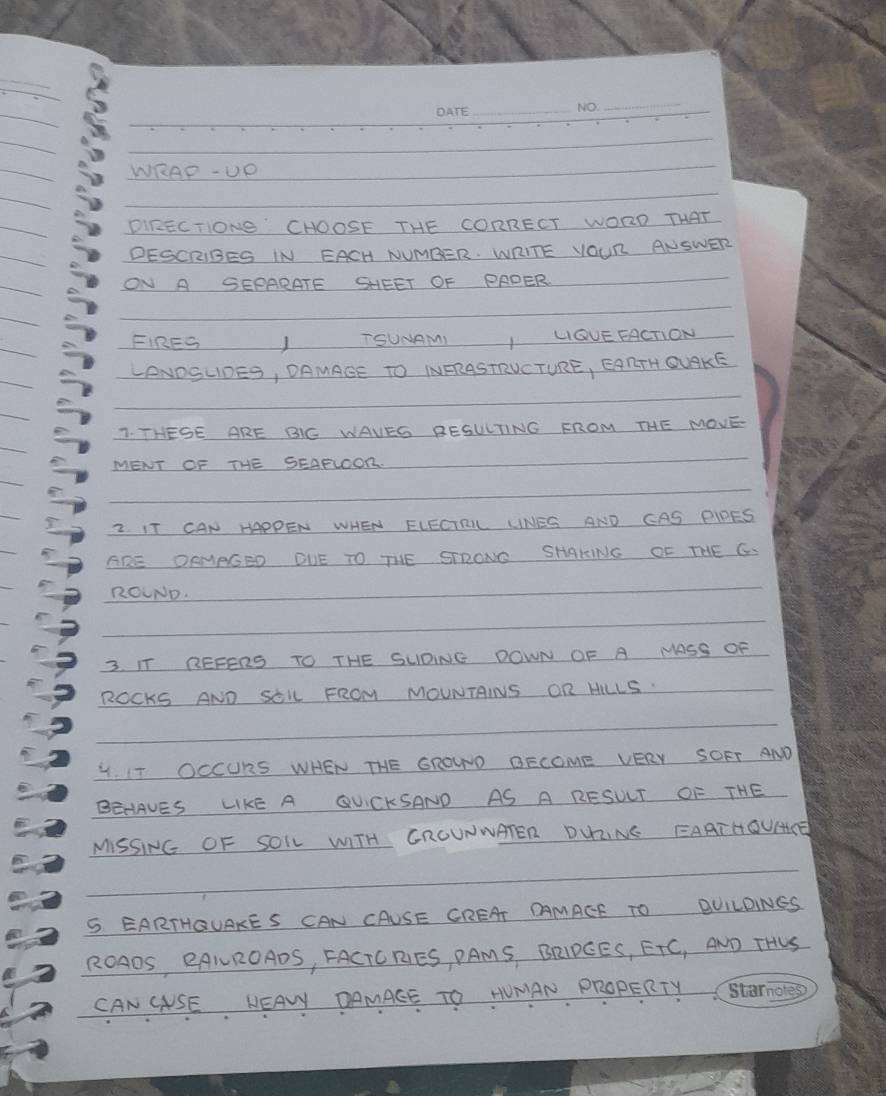 DATE NO.
WRAP-UP
DIRECTIONS: CHOOSE THE CORRECT WORD THAT
DESCRIBES IN EACH NUMBER. WRITE YOUR ANSWER
ON A SEPARATE SHEET OF PAPER
FIRES , TSUNAMI , LIQUEFACTION
LANDSLIDES, DAMAGE TO INFRASTRUCTURE, EARTHQUAKE
1. THESE ARE BIG WAVES RESULTING FROM THE MOVE
MENT OF THE SEAFLOOR.
2. IT CAN HAPPEN WHEN ELECTRIL LINES AND GAS PIPES
ARE DAMAGED DUE TO THE STRONG SHAKING OF THE G-
ROUND.
3 IT REFERS TO THE SLIDING DOWN OF A MASS OF
ROCKS AND SOIL FROM MOUNTAINS OR HILLS.
4. IT OCCURS WHEN THE GROUND BECOME VERY SOFT AND
BEHAVES LIKE A QUICKSAND AS A RESULT OF THE
MISSING OF SOIL WITH GROUNWATER DURING EARTHQUAKE
5 EARTHQUAKES CAN CAUSE GREAT DAMAGE TO BUILDINGS
ROADS, RAILROADS, FACTORIES, DAMS, BRIDGES, ETC, AND THUS
CAN CAUSE HEAVY DAMAGE TO HUMAN PROPERTY.
Starnotes